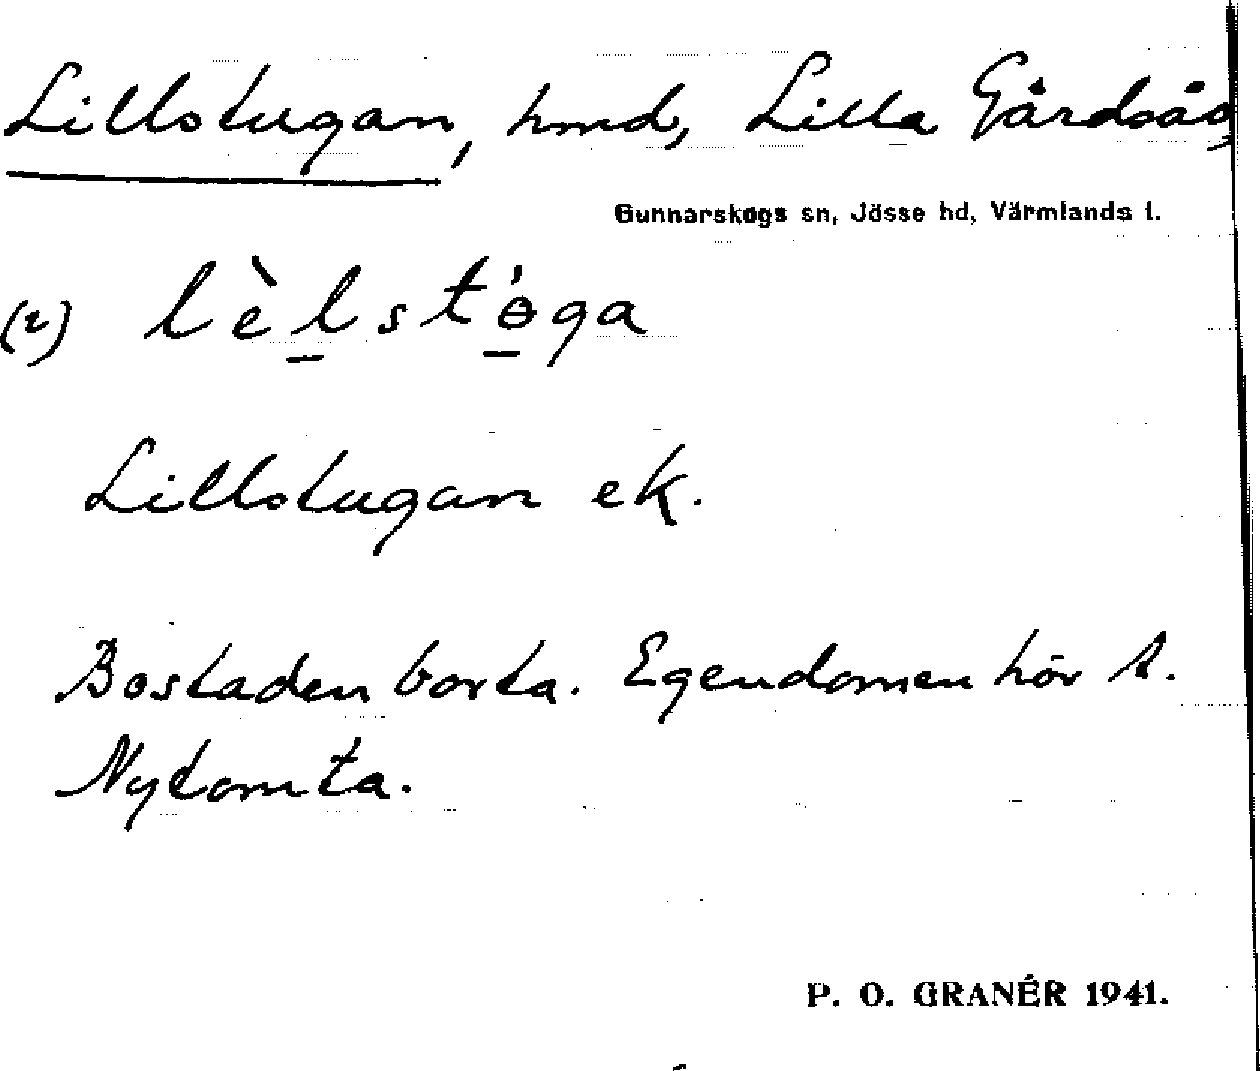 Lillstugan, hmd, Lilla Gårdsås,
Gunnarskogs sn, Jösse hd, Värmlands l.
(2) lèlstɵ́ga
Lillstugan ek.
Bostaden borta. Egendomen hör t.
Nytomta.
P. O. GRANÉR 1941.